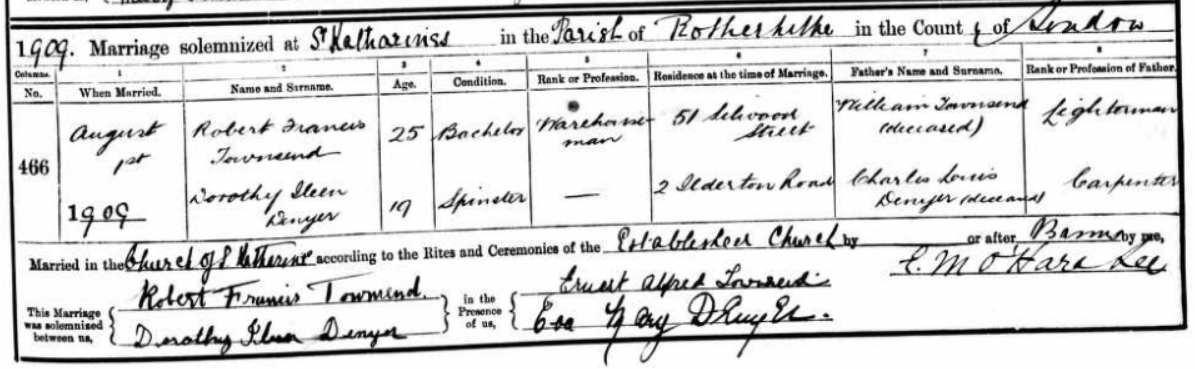 1909. Marriage solemnized at St Katharines in the Parish of Rotherhithe in the County of London
Columns. 1 2 3 4 5 6 7 8
No. When Married. Name and Surname. Age. Condition. Rank or Profession. Residence at the time of Marriage. Father's Name and Surname. Rank or Profession of Father.
466 August 1st 1909 Robert Francis Townsend 25 Bachelor Warehouse-man 51 Silwood Street William Townsend (deceased) Lighterman
Dorothy Ileen Denyer 19 Spinster — 2 Ilderton Road Charles Louis Denyer (deceased) Carpenter
Married in the Church of St Katharine according to the Rites and Ceremonies of the Established Church by or after Banns by me,
E. M O'Hara Lee
This Marriage was solemnized between us, Robert Francis Townsend. in the Presence of us, Ernest Alfred Townsend
Dorothy Ileen Denyer Eva Mary Denyer.